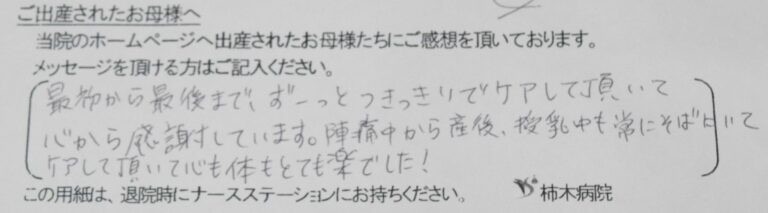 ご出産されたお母様へ
当院のホームページへ出産されたお母様たちにご感想を頂いております。
メッセージを頂ける方はご記入ください。
最初から最後まで、ずーっとつきっきりでケアして頂いて
心から感謝しています。陣痛中から産後、授乳中も常にそばにいて
ケアして頂いて心も体もとても楽でした!
この用紙は、退院時にナースステーションにお持ちください。 柿木病院